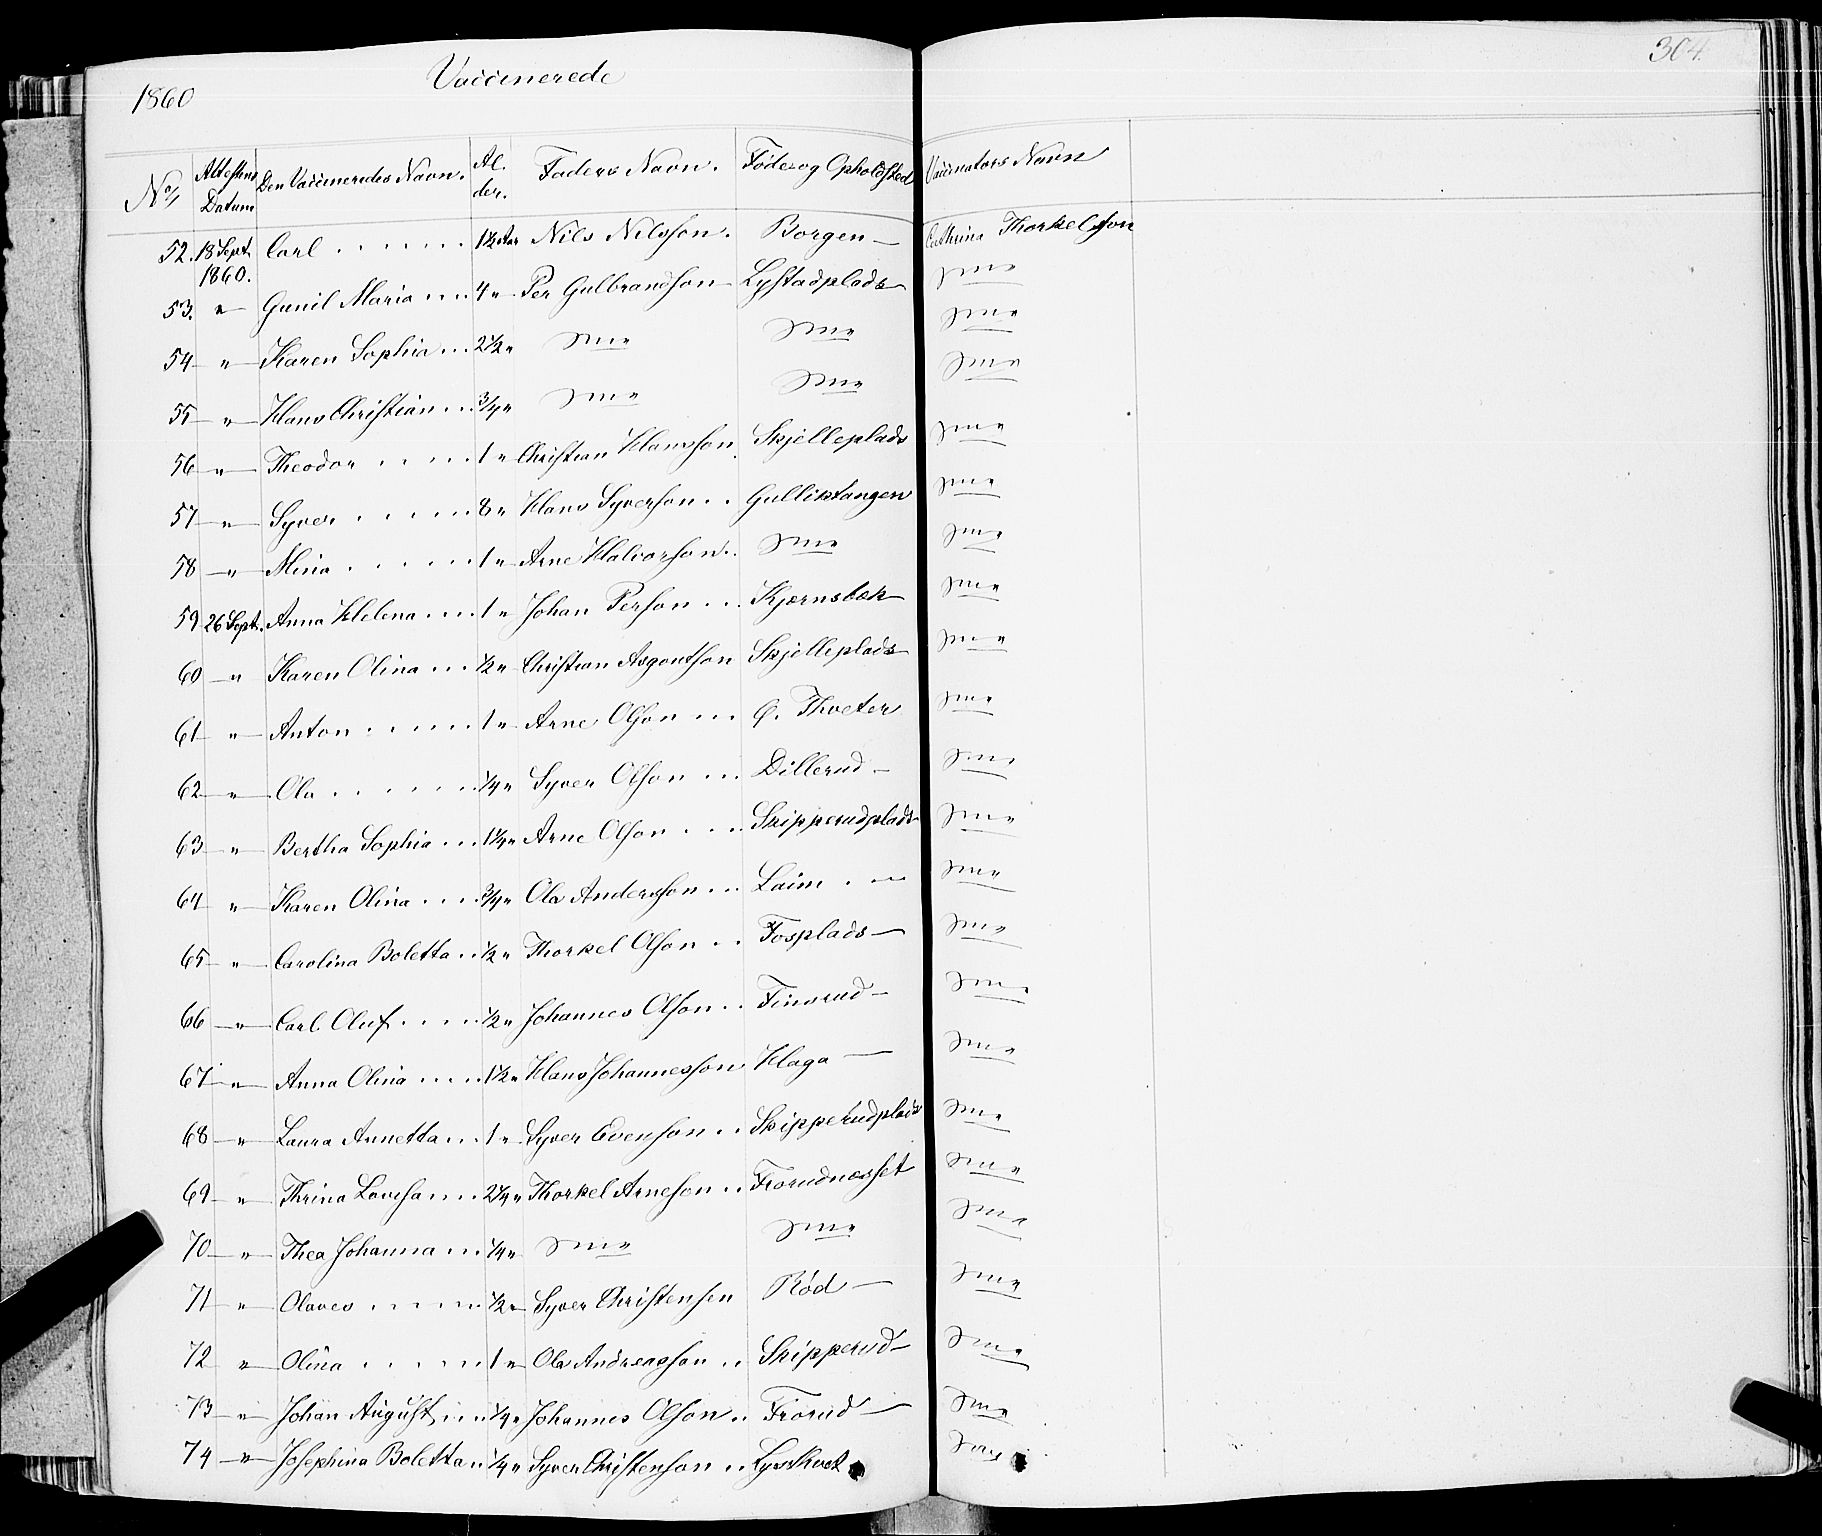 304.
1860 Vaccinerede
No/ Attestens Datum Den Vaccineredes Navn. Al. der. Faders Navn. Føde og Opholdsted Vaccinators Navn
52. 18 Sept 1860. Carl 1½ Aar Nils Nilsson. Borgen Cathrina Thorkelsson
53. " Gunil Maria 4 " Per Gulbrandson Lystadplads Sme
54 " Karen Sophia 2½ " Sme Sme Sme
55 " Hans Christian ¾ " Sme Sme Sme
56 " Theodor 1 " Christian Hansson Skjelleplads Sme
57 " Syver 8 " Hans Syverson Gulliktangen Sme
58 " Mina 1 " Arne Halvorson Sme Sme
59 26 Sept. Anna Helena 1 " Johan Person Kjernsbæk Sme
60 " Karen Olina ½ " Christian Asgautson Skjelleplads Sme
61 " Anton 1 " Arne Olson Ø. Thveter Sme
62 " Ola ¼ " Syver Olson Dillerud Sme
63 " Bertha Sophia 1¼ " Arne Olson Skipperudplads Sme
64 " Karen Olina ¾ " Ola Andersson Laim Sme
65 " Carolina Boletta ½ " Thorkel Olson Fosplads Sme
66 " Carl Oluf ½ " Johannes Olson Finsrud Sme
67 " Anna Olina 1½ " Hans Johannesson Haga Sme
68 " Laura Annetta 1 " Syver Evenson Skipperudplads Sme
69 " Thrina Lovisa 2¼ " Thorkel Arneson Frorudnæsset Sme
70 " Thea Johanna ¼ " Sme Sme Sme
71 " Olaves ½ " Syver Christensen Rød Sme
72 " Olina 1 " Ola Andreasson Skipperud Sme
73 " Johan August ¼ " Johannes Olson Frorud Sme
74 " Josephina Boletta ¼ " Syver Christenson